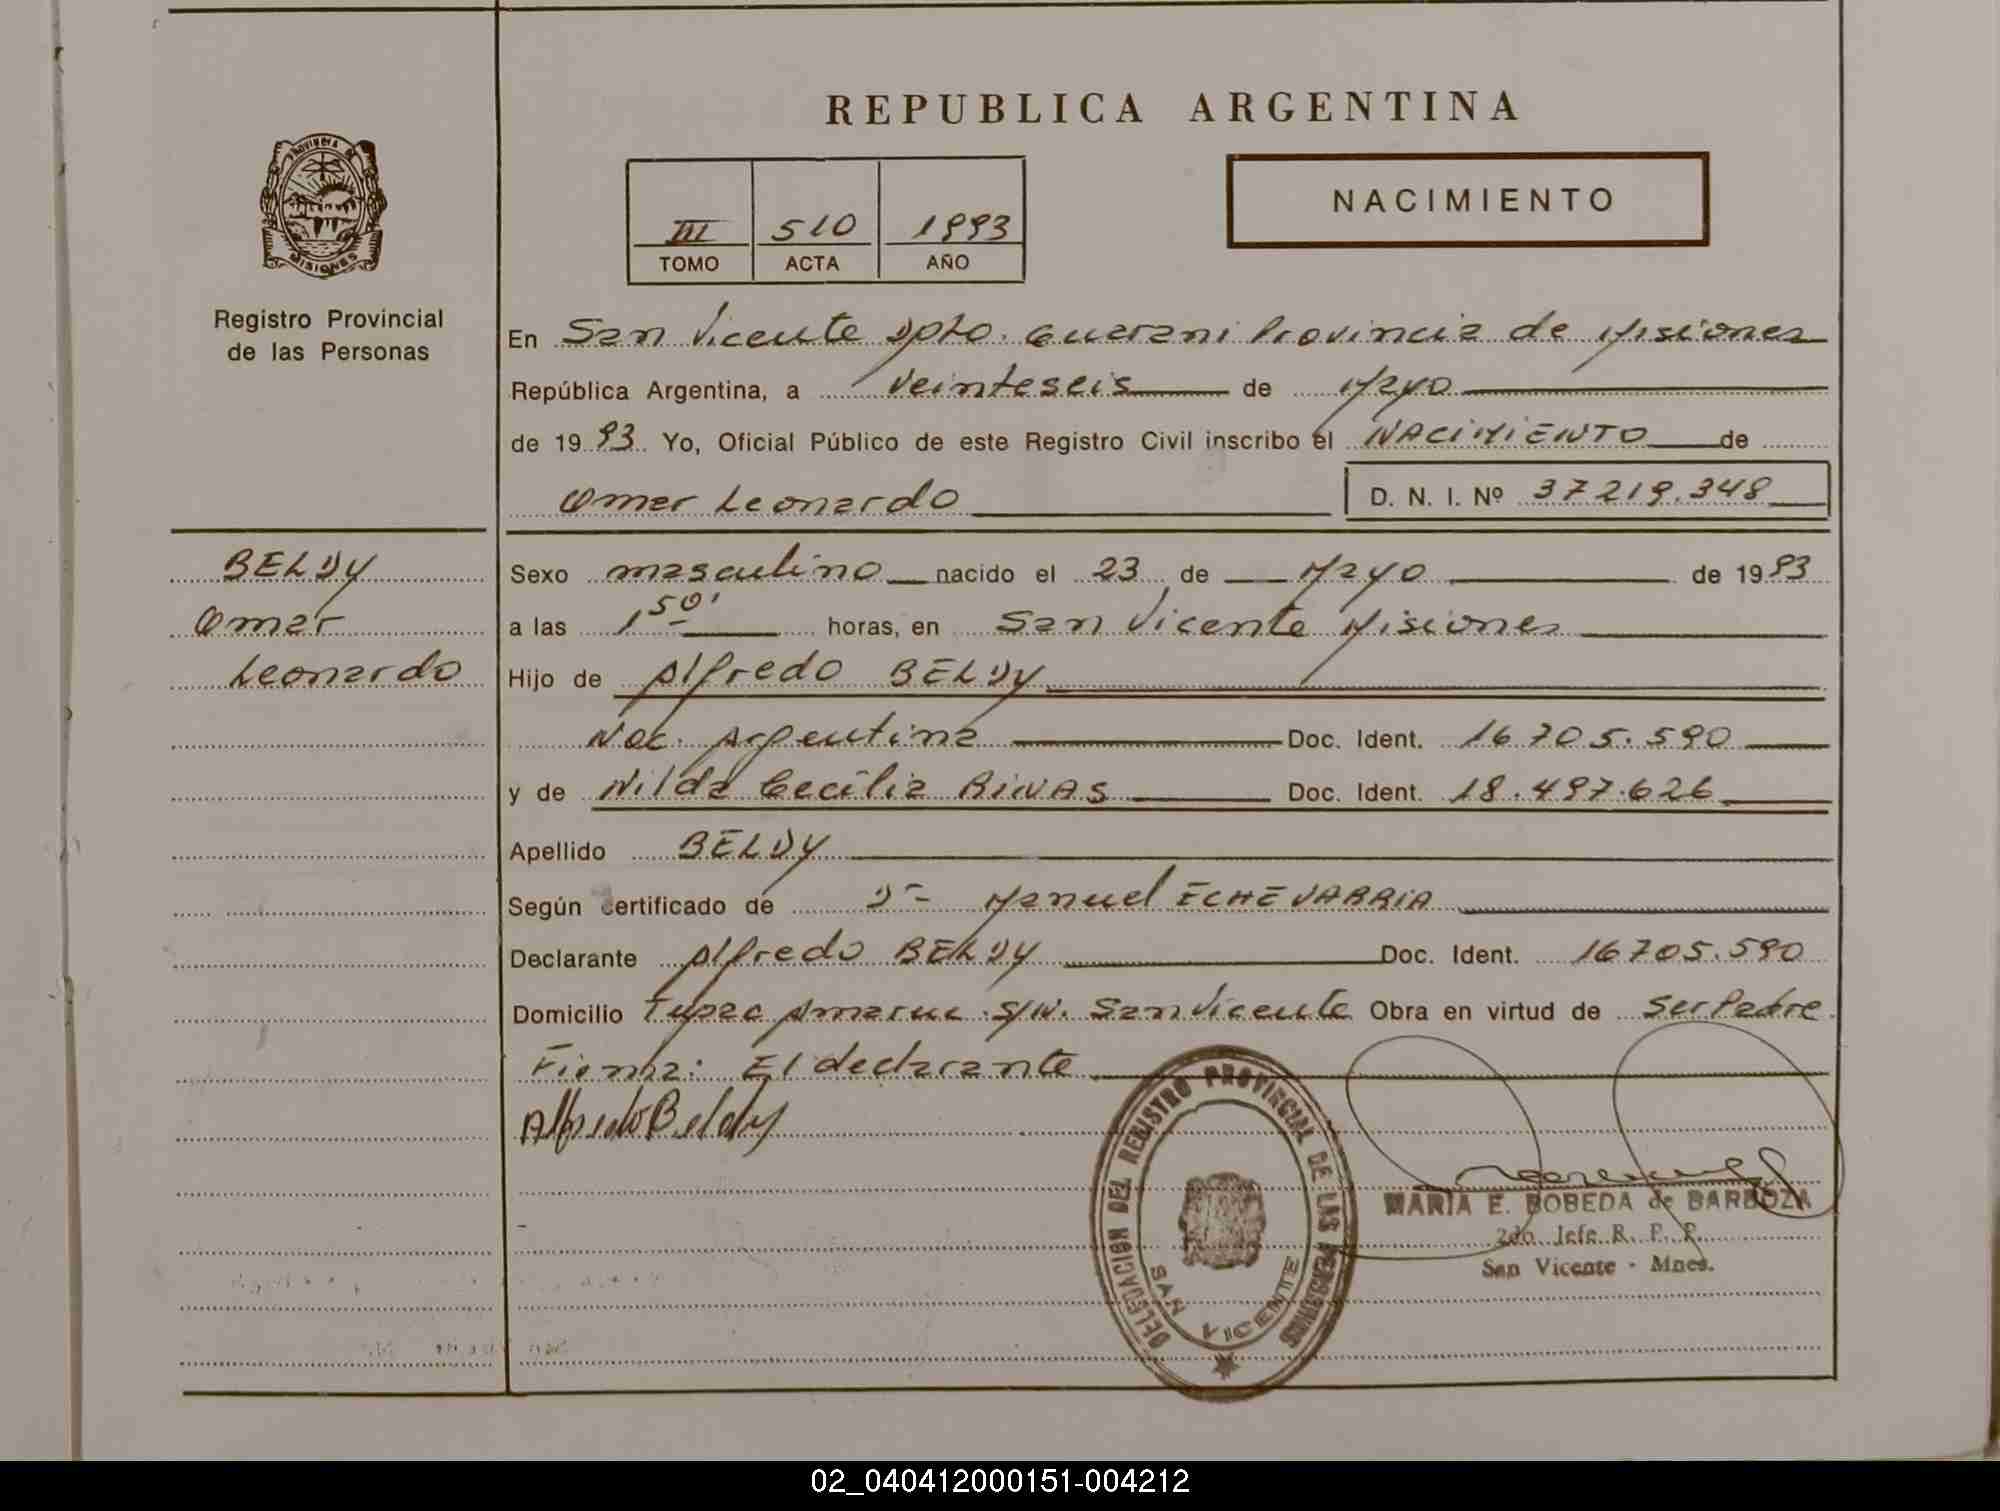 REPUBLICA ARGENTINA
PROVINCIA DE MISIONES
Registro Provincial
de las Personas
III 510 1993
TOMO ACTA AÑO
NACIMIENTO
En San Vicente Dpto. Guarani Provincia de Misiones
República Argentina, a Veinteseis de Mayo
de 1993 Yo, Oficial Público de este Registro Civil inscribo el NACIMIENTO de
Omar Leonardo D. N. I. Nº 37219.348
BELDY
Omar
Leonardo
Sexo masculino nacido el 23 de Mayo de 1993
a las 1 50' horas, en San Vicente Misiones
Hijo de Alfredo BELDY
Nac. Argentina Doc. Ident. 16.705.590
y de Nilda Cecilia RIVAS Doc. Ident. 18.497.626
Apellido BELDY
Según certificado de Dr Manuel ECHEVARRIA
Declarante Alfredo BELDY Doc. Ident. 16705.590
Domicilio Tupac Amaruc S/N. San Vicente Obra en virtud de ser Padre
Firma: El declarante
Alfredo Beldy
DELEGACION DEL REGISTRO PROVINCIAL DE LAS PERSONAS
SAN VICENTE
MARIA E. BOBEDA de BARBOZA
2do. Jefe R. P. P.
San Vicente - Mnes.
02_040412000151-004212